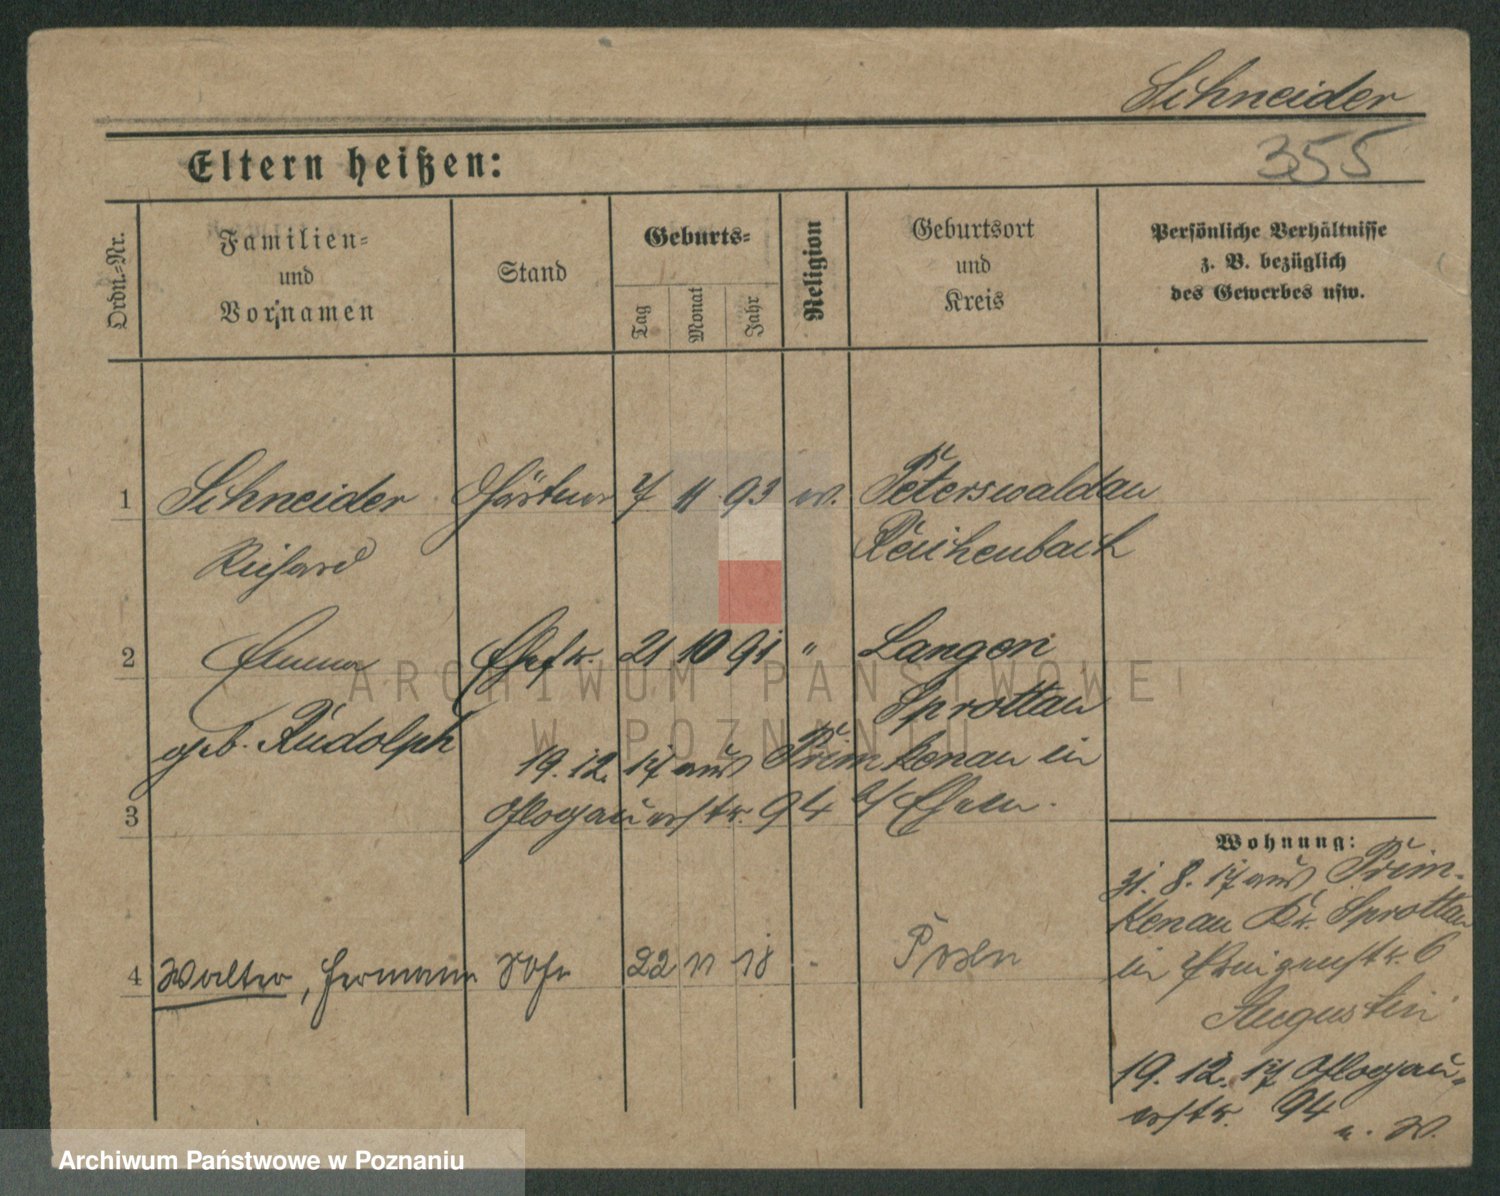 Schneider
355
Eltern heißen:
Ordn.-Nr.
Familien-
und
Vornamen
Stand
Geburts-
Tag
Monat
Jahr
Religion
Geburtsort
und
Kreis
Persönliche Verhältnisse
z. B. bezüglich
des Gewerbes usw.
1 Schneider Gärtner 7 11 93 ev. Peterswaldau
Richard Reichenbach
2 Emma Ehefr. 21 10 91 " Langen
Sprottau
geb. Rudolph
19. 12. 17 aus Primkenau in
3 Glogauerstr. 94 b/ Ehem.
4 Walter, Hermann Sohn 22 11 18 Posen
Wohnung:
31. 8. 17 aus Prim-
kenau Kr. Sprottau
in 6
Augustin
19. 12. 17 Glogau-
erstr. 94
u. W.
ARCHIWUM PAŃSTWOWE
W POZNANIU
Archiwum Państwowe w Poznaniu